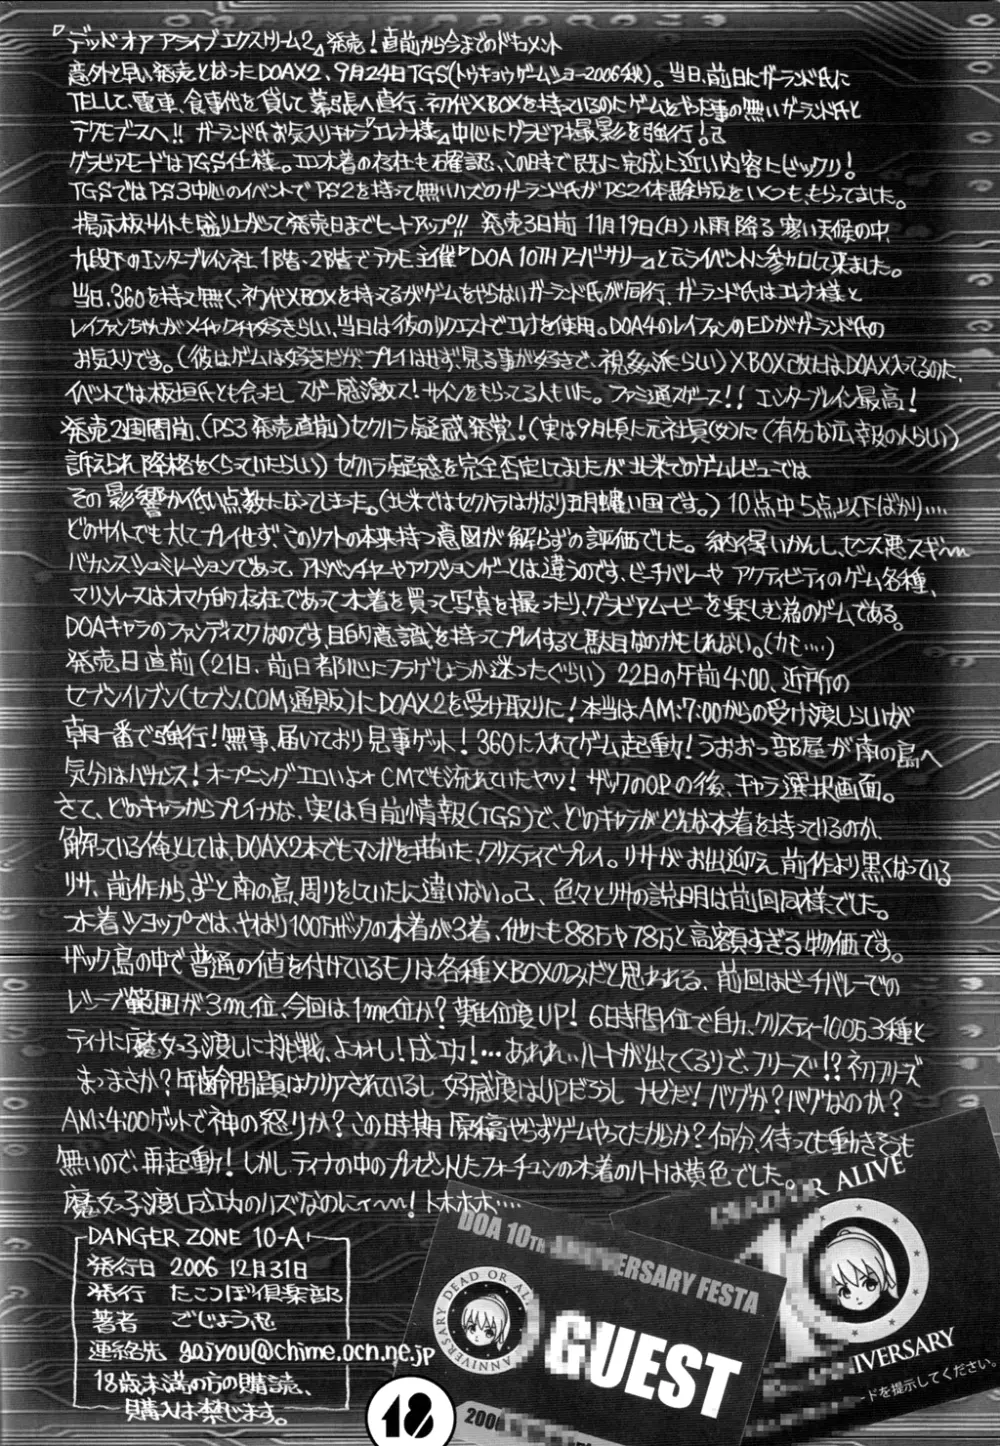 『デッド オア アライブ エクストリーム2』発売！直前から今までのドキュメント
意外と早い発売となったDOAX2、9月24日TGS(トウキョウゲームショー2006秋)。当日、前日にガーランド氏に
TELして、電車、食事代を貸して幕張へ直行、初代XBOXを持っているのにゲームをやった事の無いガーランド氏と
テクモブースへ!! ガーランド氏お気入りキャラ『エレナ様』中心にグラビア撮影を強行！
グラビアモードはTGS仕様。エロ水着の存在も確認、この時で既に完成に近い内容にビックリ！
TGSではPS3中心のイベントでPS2を持って無いハズのガーランド氏がPS2体験版をいくつも、もらってました。
掲示板サイトも盛り上がって発売日までヒートアップ!! 発売3日前 11月19日(日)小雨降る寒い天候の中、
九段下のエンターブレイン社1階・2階でテクモ主催『DOA 10TH アニバーサリー』と云うイベントに参加して来ました。
当日、360を持って無く、初代XBOXを持ってるがゲームをやらないガーランド氏が同行、ガーランド氏はエレナ様と
レイファンちゃんがメチャクチャ好きらしい、当日は彼のリクエストでエレナを使用。DOA4のレイファンのEDがガーランド氏の
お気入りです。(彼はゲームは好きだが、プレイはせず、見る事が好きで、視姦派らしい)XBOX
イベントでは板垣氏とも会ったし スゲー感激ス！サインをもらってる人もいた。ファミ通スガース!! エンターブレイン最高！
発売2週間前、(PS3発売直前)セクハラ疑惑発覚！(実は9月頃に元社員(女)に(有名な広報の人らしい)
訴えられ降格をくらっていたらしい)セクハラ疑惑を完全否定してましたが北米でのゲームレビューでは
その影響か低い点数になってしまった。(北米ではセクハラはかなり五月蝿い国です。)10点中5点以下ばかり‥‥
どのサイトでも大してプレイせず、このソフトの本来持つ意図が解らずの評価でした。納得いかんし、センス悪スギ〜
バカンスシュミレーションであって アドベンチャーやアクションゲーとは違うのです、ビーチバレーや アクティビティのゲーム各種、
マリンレースはオマケ的存在であって水着を買って写真を撮ったり、グラビアムービーを楽しむ為のゲームである。
DOAキャラのファンディスクなのです、目的意識を持ってプレイすると駄目なのかもしれない。(カモ‥‥)
発売日直前(21日、前日都心にフラゲしようか迷ったぐらい)22日の午前4:00、近所の
セブンイレブン(セブン.COM通販)にDOAX2を受け取りに！本当はAM:7:00からの受け渡しらしいが
朝一番で強行！無事、届いており見事ゲット！360に入れてゲーム起動！うおおっ部屋が南の島へ
気分はバカンス！オープニングエロいよォ CMでも流れていたヤツ！ザックのOPの後、キャラ選択画面。
さて、どのキャラからプレイかな、実は自前情報(TGS)で、どのキャラがどんな水着を持っているのか、
解っている俺としては、DOAX2本でもマンガを描いた、クリスティでプレイ。リサがお出迎え、前作より黒くなっている
リサ、前作から、ずと南の島、周りをしていたに違いない。色々とリサの説明は前回同様でした。
水着ショップでは、やはり100万ザックの水着が3着、他にも88万や78万と高額すぎる物価です。
ザック島の中で普通の値を付けているモノは各種XBOXのみだと思われる、前回はビーチバレーでの
レシーブ範囲が3m位、今回は1m位か？難位度UP！6日時間位で自力、クリスティー100万3種と
ティナに魔女っ子渡しに挑戦、よォし！成功！‥‥あれれぃハートが出てくるりで、フリーズ!? 初フリーズ
まっまさか？年齢問題はクリアされているし 好感度はUPだろうし ナゼだ！バグか？バグなのか？
AM:4:00ゲットで神の怒りか？この時期 原稿やらずゲームやってたからか？何分、待っても動きそうも
無いので、再起動！しかしティナの中のプレゼントしたフォーチュンの水着のハートは黄色でした。
魔女っ子渡し成功のハズなのにィ〜！トホホホ‥‥
DANGER ZONE 10-A
発行日 2006 12月31日
発行 たこつぼ倶楽部
著者 ごじょう忍
連絡先 gojyou@chime.ocn.ne.jp
18歳未満の方の購読、
購入は禁じます。
18
DOA 10TH ANNIVERSARY FESTA
ANNIVERSARY DEAD OR AL
GUEST
200
DEAD OR ALIVE
NIVERSARY
ードを提示してください。